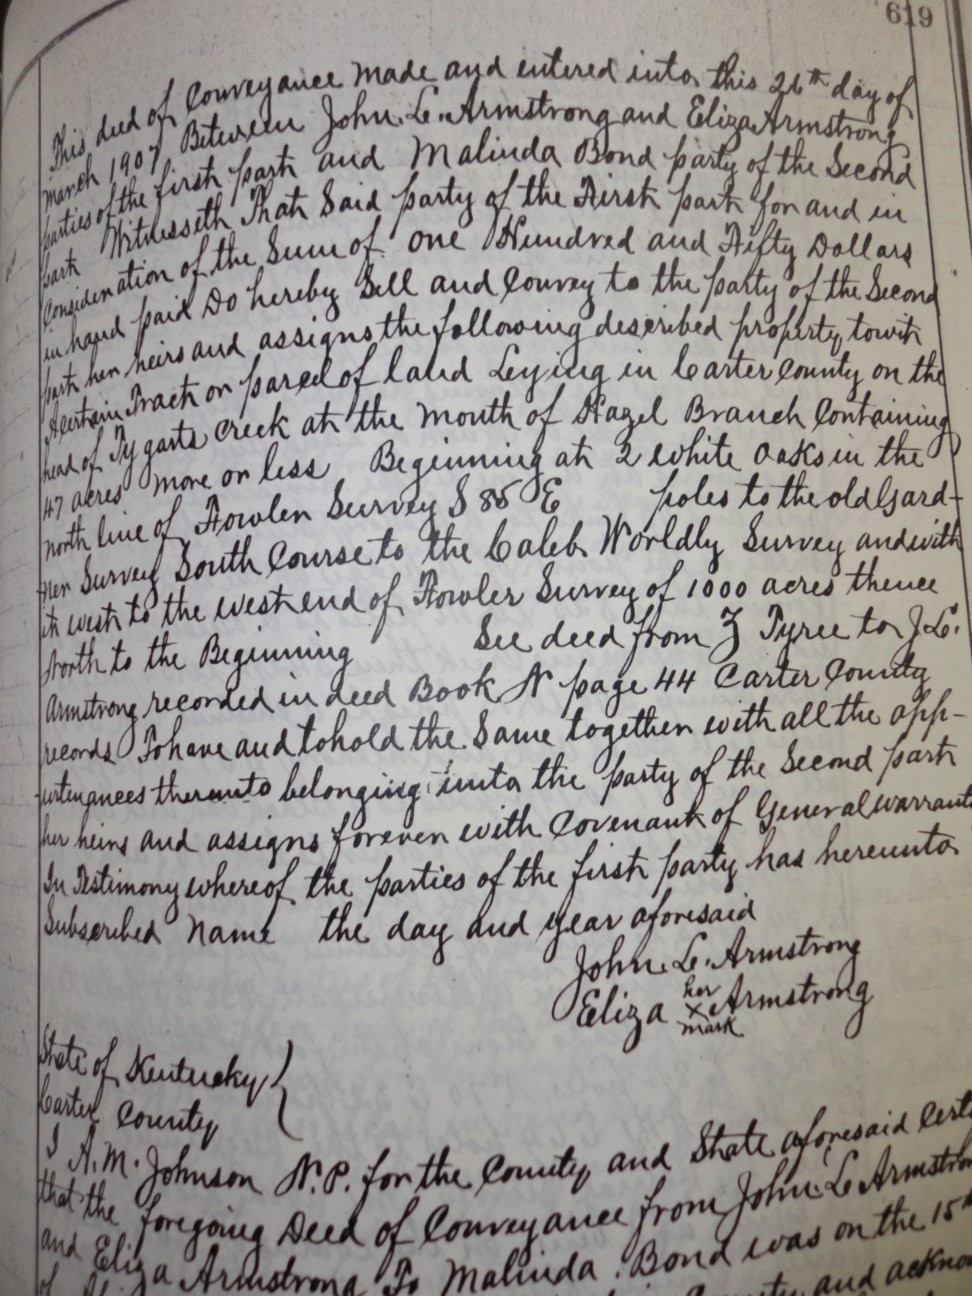 619
This deed of Conveyance made and entered into this 26th day of
March 1907 Between John L. Armstrong and Eliza Armstrong
parties of the first part and Malinda Bond party of the Second
part Witnesseth That Said party of the First part for and in
Consideration of the Sum of one Hundred and Fifty Dollars
in hand paid Do hereby Sell and Convey to the party of the Second
part her heirs and assigns the following described property towit
A certain Tract or parcel of land Leying in Carter County on the
head of Tygarts Creek at the mouth of Hazel Branch Containing
47 acres more or less Beginning at 2 white oaks in the
north line of Fowler Survey S 85 E poles to the old Gard-
ner Survey South Course to the Caleb Worldly Survey and with
it west to the west end of Fowler Survey of 1000 acres thence
North to the Beginning See deed from Z Tyree to J.L.
Armstrong recorded in deed Book N page 44 Carter County
records To have and to hold the Same together with all the app-
urtenances thereunto belonging unto the party of the Second part
her heirs and assigns forever with Covenant of General warrant
In Testimony whereof the parties of the first party has hereunto
Subscribed Name the day and year aforesaid
John L. Armstrong
Eliza her x mark Armstrong
State of Kentucky
Carter County
I A.M. Johnson N.P. for the County and State aforesaid Cert
that the foregoing Deed of Conveyance from John L Armstron
and Eliza Armstrong To Malinda Bond was on the 15th
County and ackno